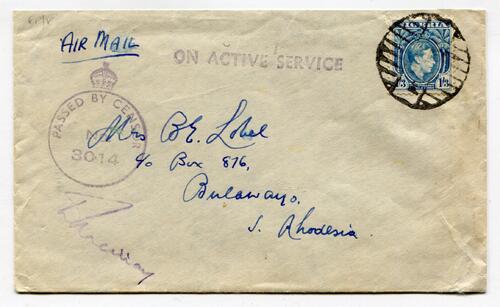 AIR MAIL
ON ACTIVE SERVICE
NIGERIA
1/3 1/3
PASSED BY CENSOR
No
3014
Mrs B.E. Lobel
c/o Box 876,
Bulawayo,
S. Rhodesia.